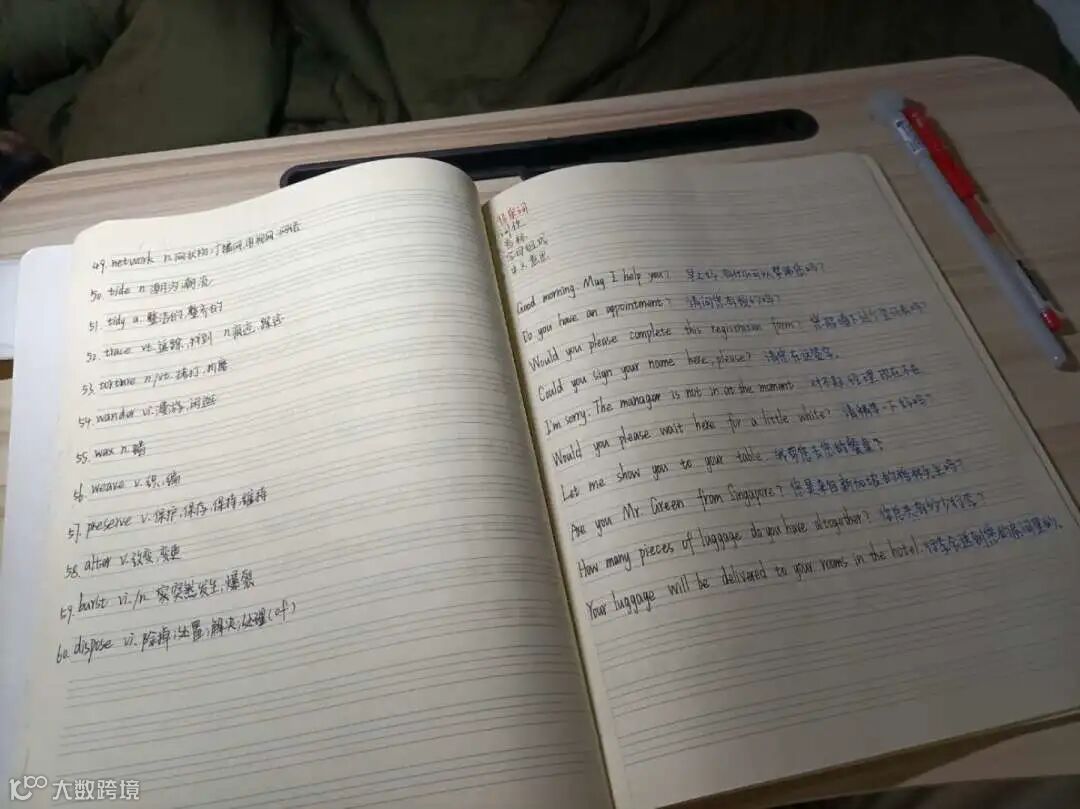 49. network n. 网状物,广播网,电视网,网络
50. tide n. 潮汐,潮流
51. tidy a. 整洁的,整齐的
52. trace vt. 追踪,找到 n. 痕迹,踪迹
53. torture n./vt. 拷打,折磨
54. wander vi. 漫游,闲逛
55. wax n. 蜡
56. weave v. 织,编
57. preserve v. 保护,保存,保持,维持
58. alter v. 改变,变更
59. burst vi./n. 突然发生,爆裂
60. dispose vi. 除掉;处置;解决;处理(of)
Good morning. May I help you? 早上好,
Do you have an appointment? 请问您有预约吗?
Would you please complete this registration form?
Could you sign your name here, please? 请您在这签字。
I'm sorry. The manager is not in at the moment 对不起,经理现在不在
Would you please wait here for a little while? 请稍等一下好吗?
Let me show you to your table
Are you Mr. Green from Singapore? 您是来自新加坡的格林先生吗?
How many pieces of luggage do you have altogether?
Your luggage will be delivered to your rooms in the hotel.
大数跨境